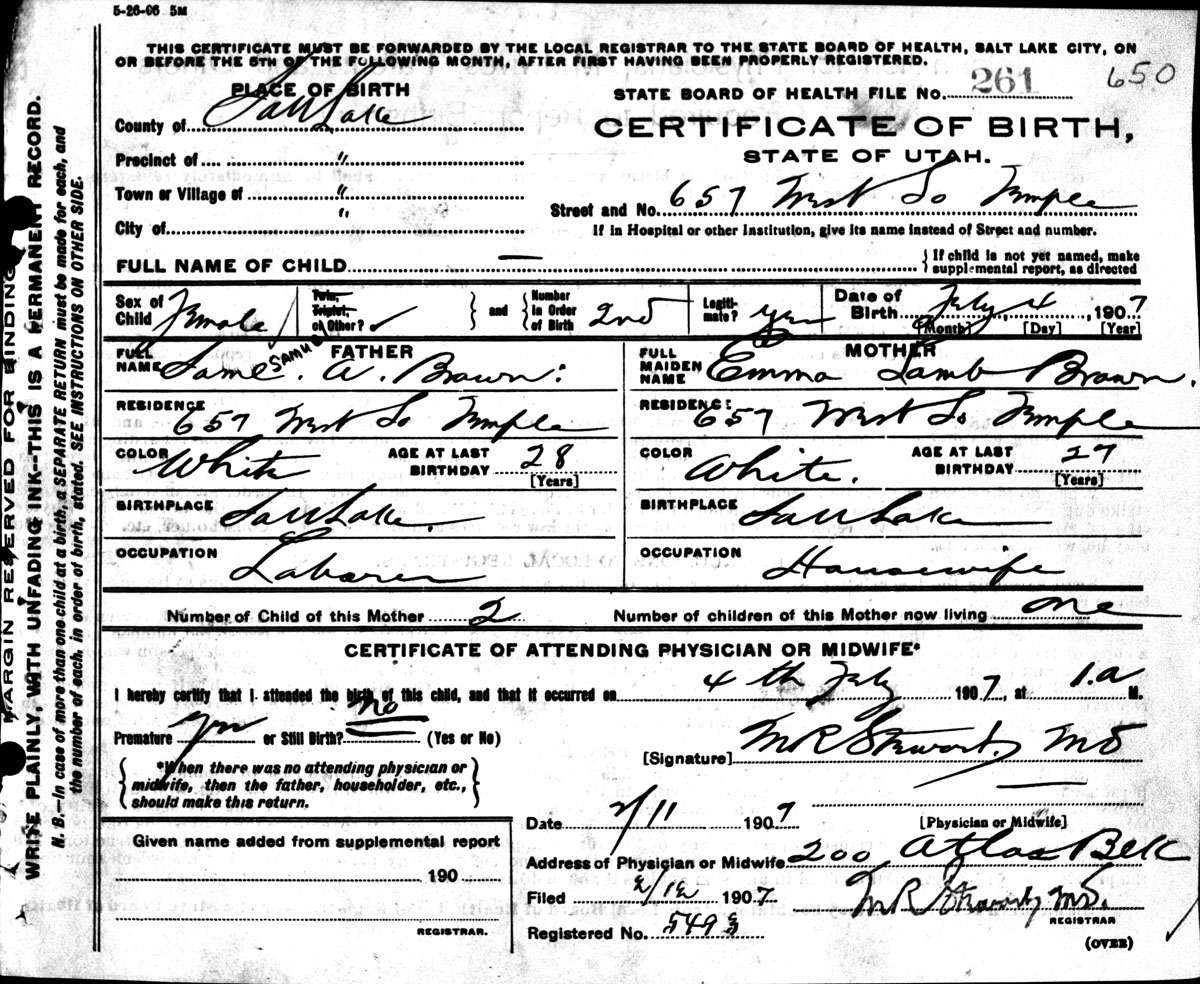 5-26-06 5M
THIS CERTIFICATE MUST BE FORWARDED BY THE LOCAL REGISTRAR TO THE STATE BOARD OF HEALTH, SALT LAKE CITY, ON
OR BEFORE THE 5TH OF THE FOLLOWING MONTH, AFTER FIRST HAVING BEEN PROPERLY REGISTERED.
650
PLACE OF BIRTH
STATE BOARD OF HEALTH FILE NO. 261
County of Salt Lake
CERTIFICATE OF BIRTH,
STATE OF UTAH.
Precinct of "
Town or Village of "
City of "
Street and No. 657 West So Temple
If in Hospital or other Institution, give its name instead of Street and number.
FULL NAME OF CHILD —
{ If child is not yet named, make supplemental report, as directed
Sex of Child Female
Twin, Triplet, or Other? ✓ } and { Number in Order of Birth 2nd
Legitimate? yes
Date of Birth July 4, 1907
[Month] [Day] [Year]
FATHER
FULL NAME Saml. A. Brown
SAMUEL
RESIDENCE 657 West So Temple
COLOR White AGE AT LAST BIRTHDAY 28
[Years]
BIRTHPLACE Salt Lake.
OCCUPATION Laborer
MOTHER
FULL MAIDEN NAME Emma Lamb Brown.
RESIDENCE 657 West So Temple
COLOR White. AGE AT LAST BIRTHDAY 27
[Years]
BIRTHPLACE Salt Lake
OCCUPATION Housewife
Number of Child of this Mother 2 Number of children of this Mother now living one
CERTIFICATE OF ATTENDING PHYSICIAN OR MIDWIFE*
I hereby certify that I attended the birth of this child, and that it occurred on 4th July 1907, at 1.a M.
Premature yes or Still Birth? no (Yes or No)
[Signature] M R Stewart, MD
{ *When there was no attending physician or
midwife, then the father, householder, etc.,
should make this return. }
Date 7/11 1907
[Physician or Midwife]
Given name added from supplemental report
190
REGISTRAR.
Address of Physician or Midwife 200 Atlas Blk
Filed 1907 M R Stewart, MD.
REGISTRAR
Registered No. 549
(OVER)
MARGIN RESERVED FOR BINDING
WRITE PLAINLY, WITH UNFADING INK--THIS IS A PERMANENT RECORD.
N. B.--In case of more than one child at a birth, a SEPARATE RETURN must be made for each, and
the number of each, in order of birth, stated. SEE INSTRUCTIONS ON OTHER SIDE.